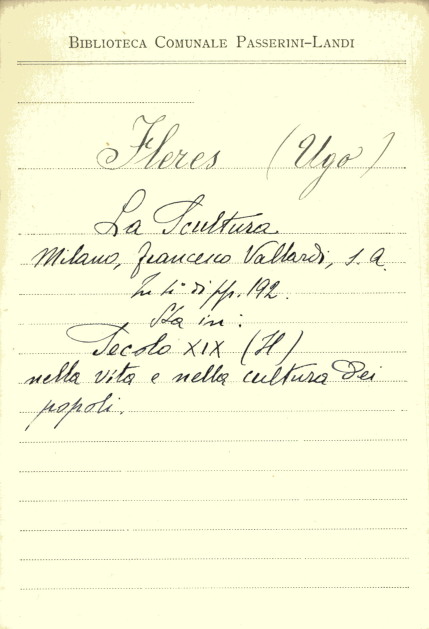 BIBLIOTECA COMUNALE PASSERINI-LANDI
Fleres (Ugo)
La Scultura
Milano, Francesco Vallardi, s. a.
In 4° di pp. 192.
Sta in:
Secolo XIX (Il)
nella vita e nella cultura dei
popoli.